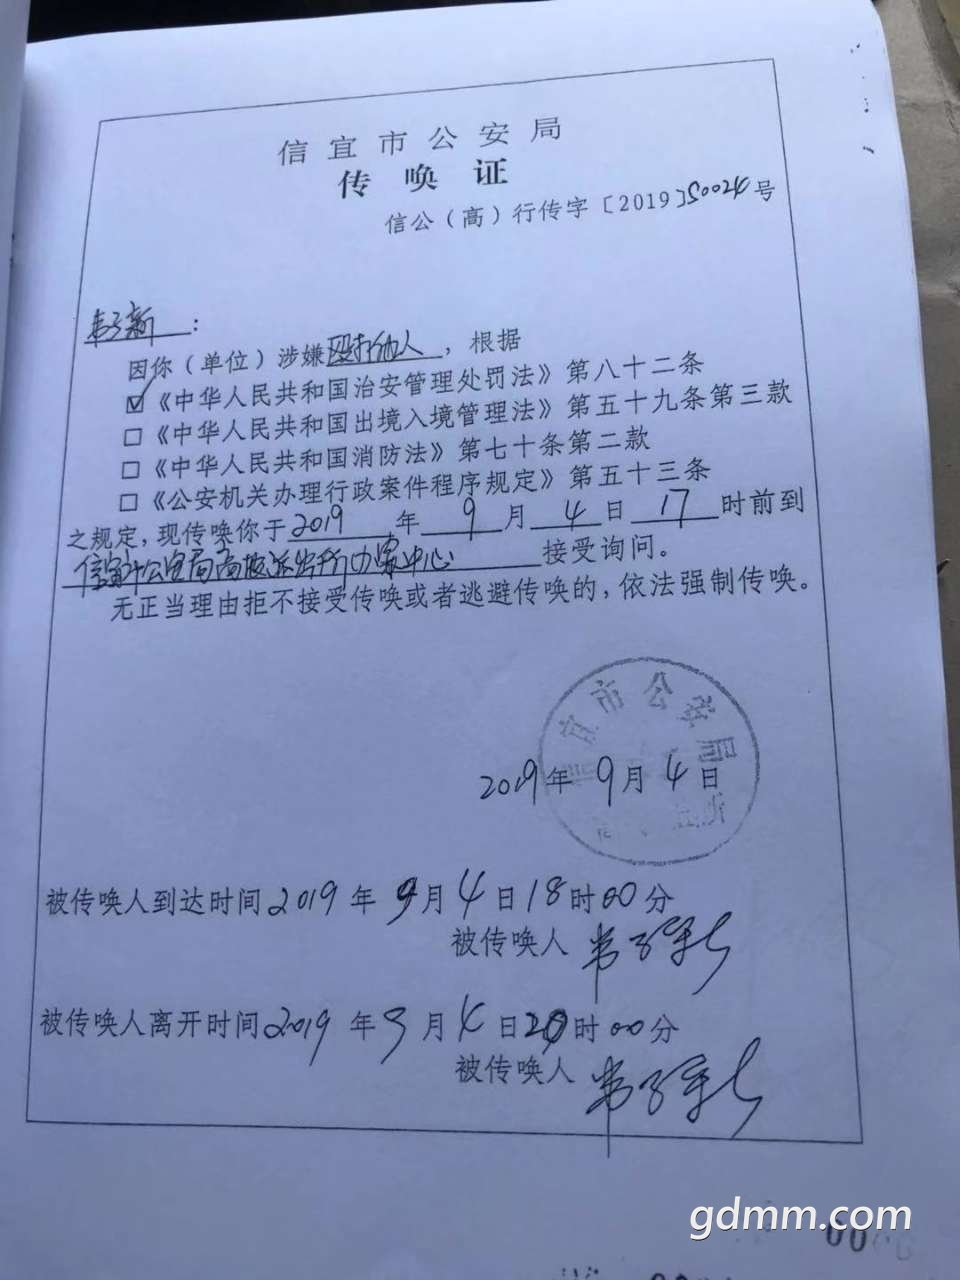 信宜市公安局
传唤证
信公（高）行传字〔2019〕50024号
韦子新：
因你（单位）涉嫌殴打他人，根据
☑《中华人民共和国治安管理处罚法》第八十二条
□《中华人民共和国出境入境管理法》第五十九条第三款
□《中华人民共和国消防法》第七十条第二款
□《公安机关办理行政案件程序规定》第五十三条
之规定，现传唤你于2019年9月4日17时前到
信宜市公安局高坡派出所办案中心接受询问。
无正当理由拒不接受传唤或者逃避传唤的，依法强制传唤。
宜市公安局
2019年9月4日
被传唤人到达时间2019年9月4日18时00分
被传唤人 韦子新
被传唤人离开时间2019年9月4日20时00分
被传唤人 韦子新
gdmm.com